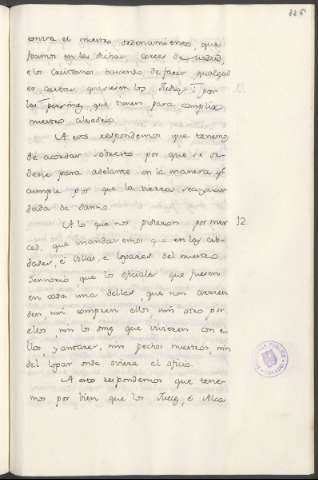 contra el nuestro ordenamiento, que
fizimos en las dichas Cortes de Madrid,
e los cristianos haviendo de facer qualquier
cartas quisieren los Judios por
las que tienen para complir
nuestro
A esto respondemos que tenemos
de acordar sobresto por que se or-
dene para adelante en la manera que
cumple por que la tierra sea guar-
dada de danno.
A lo que nos pidieron por mer 12.
ced, que mandasemos que en las cib-
dades, e villas, e logares del nuestro
Sennorio que los oficiales que fueren
en cada una dellas, que non arrien-
den, nin compren ellos nin otro por
ellos, nin los que vivieren con e-
llos, nin pechos nuestros, nin
del logar onde oviere el oficio.
A esto respondemos que tene-
mos por bien que los Jueces, e Alca